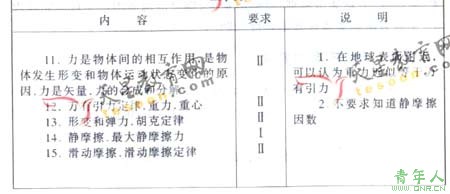 内 容 要求 说 明
11. 力是物体间的相互作用,是物 Ⅱ 1. 在地球表面附近,
体发生形变和物体运动状态变化的原 可以认为重力近似等于万
因.力是矢量.力的合成和分解 有引力
12. 万有引力定律.重力.重心 Ⅱ 2. 不要求知道静摩擦
13. 形变和弹力.胡克定律 Ⅱ 因数
14. 静摩擦.最大静摩擦力 Ⅰ
15. 滑动摩擦.滑动摩擦定律 Ⅱ
青年人
www.QNR.cn